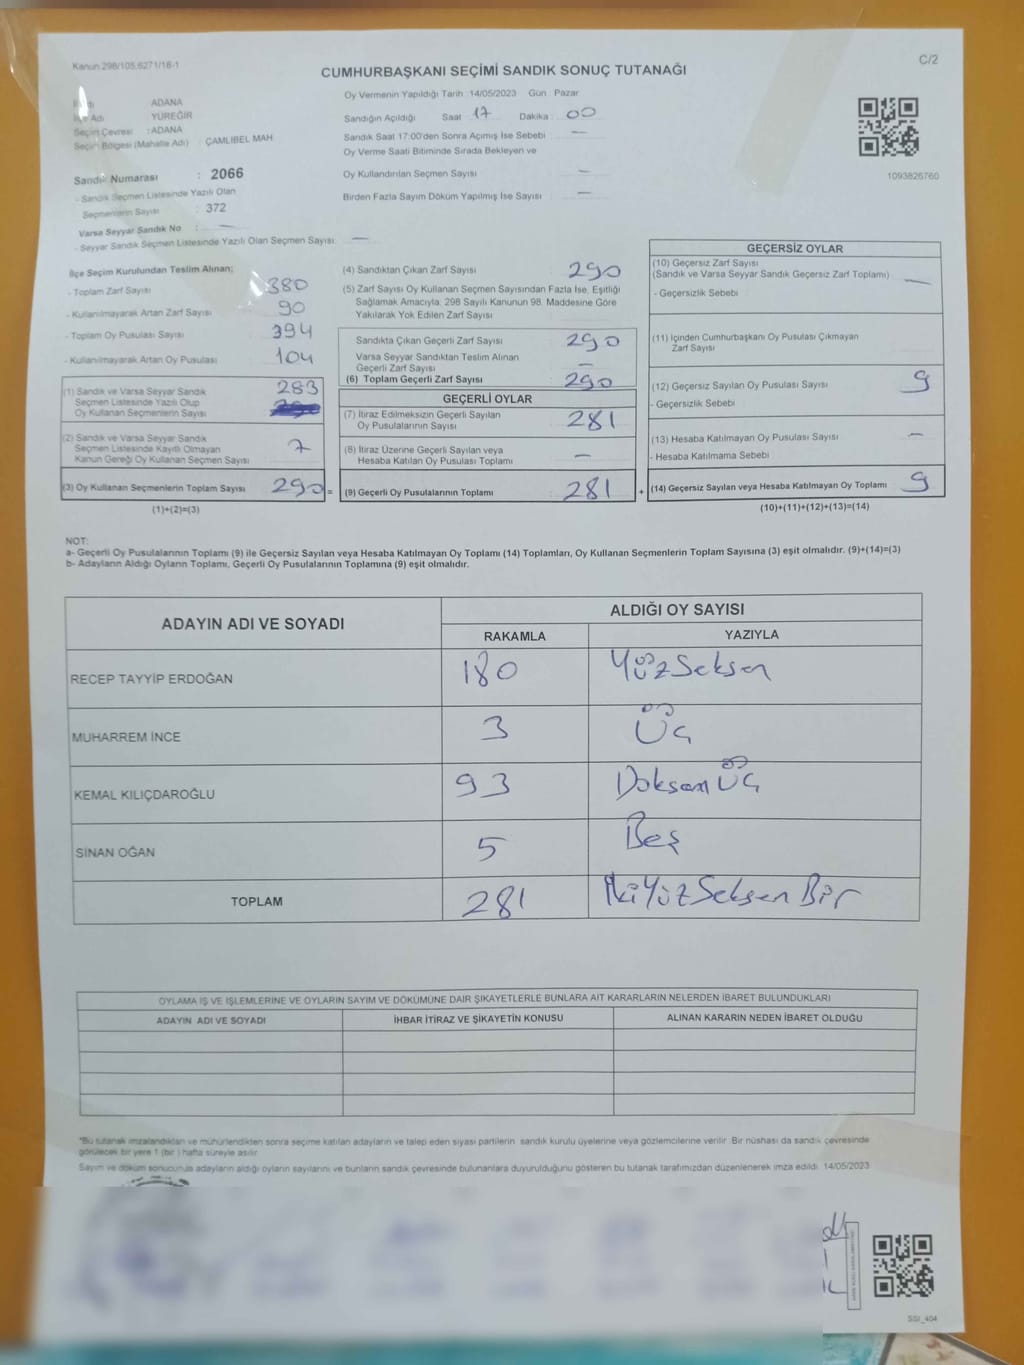 Kanun 298/105,6271/18-1
C/2
CUMHURBAŞKANI SEÇİMİ SANDIK SONUÇ TUTANAĞI
ADANA
İlçe Adı YÜREĞİR
Seçim Çevresi : ADANA
Seçim Bölgesi (Mahalle Adı) : ÇAMLIBEL MAH
Sandık Numarası : 2066
- Sandık Seçmen Listesinde Yazılı Olan
Seçmenlerin Sayısı : 372
Varsa Seyyar Sandık No : —
- Seyyar Sandık Seçmen Listesinde Yazılı Olan Seçmen Sayısı: —
Oy Vermenin Yapıldığı Tarih :14/05/2023 Gün : Pazar
Sandığın Açıldığı Saat 17 Dakika 00
Sandık Saat 17:00'den Sonra Açımış İse Sebebi —
Oy Verme Saati Bitiminde Sırada Bekleyen ve
Oy Kullandırılan Seçmen Sayısı : —
Birden Fazla Sayım Döküm Yapılmış İse Sayısı : —
1093826760
İlçe Seçim Kurulundan Teslim Alınan;
- Toplam Zarf Sayısı 380
- Kullanılmayarak Artan Zarf Sayısı 90
- Toplam Oy Pusulası Sayısı 394
- Kullanılmayarak Artan Oy Pusulası 104
(1) Sandık ve Varsa Seyyar Sandık
Seçmen Listesinde Yazılı Olup
Oy Kullanan Seçmenlerin Sayısı 283
(2) Sandık ve Varsa Seyyar Sandık
Seçmen Listesinde Kayıtlı Olmayan
Kanun Gereği Oy Kullanan Seçmen Sayısı 7
(3) Oy Kullanan Seçmenlerin Toplam Sayısı 290 =
(1)+(2)=(3)
(4) Sandıktan Çıkan Zarf Sayısı 290
(5) Zarf Sayısı Oy Kullanan Seçmen Sayısından Fazla İse, Eşitliği
Sağlamak Amacıyla; 298 Sayılı Kanunun 98. Maddesine Göre
Yakılarak Yok Edilen Zarf Sayısı
Sandıkta Çıkan Geçerli Zarf Sayısı 290
Varsa Seyyar Sandıktan Teslim Alınan
Geçerli Zarf Sayısı —
(6) Toplam Geçerli Zarf Sayısı 290
GEÇERLİ OYLAR
(7) İtiraz Edilmeksizin Geçerli Sayılan
Oy Pusulalarının Sayısı 281
(8) İtiraz Üzerine Geçerli Sayılan veya
Hesaba Katılan Oy Pusulası Toplamı —
(9) Geçerli Oy Pusulalarının Toplamı 281 +
GEÇERSİZ OYLAR
(10) Geçersiz Zarf Sayısı
(Sandık ve Varsa Seyyar Sandık Geçersiz Zarf Toplamı) —
- Geçersizlik Sebebi
(11) İçinden Cumhurbaşkanı Oy Pusulası Çıkmayan
Zarf Sayısı
(12) Geçersiz Sayılan Oy Pusulası Sayısı 9
- Geçersizlik Sebebi
(13) Hesaba Katılmayan Oy Pusulası Sayısı —
- Hesaba Katılmama Sebebi
(14) Geçersiz Sayılan veya Hesaba Katılmayan Oy Toplamı 9
(10)+(11)+(12)+(13)=(14)
NOT:
a- Geçerli Oy Pusulalarının Toplamı (9) ile Geçersiz Sayılan veya Hesaba Katılmayan Oy Toplamı (14) Toplamları, Oy Kullanan Seçmenlerin Toplam Sayısına (3) eşit olmalıdır. (9)+(14)=(3)
b- Adayların Aldığı Oyların Toplamı, Geçerli Oy Pusulalarının Toplamına (9) eşit olmalıdır.
ADAYIN ADI VE SOYADI ALDIĞI OY SAYISI
RAKAMLA YAZIYLA
RECEP TAYYİP ERDOĞAN 180 YüzSeksen
MUHARREM İNCE 3 Üç
KEMAL KILIÇDAROĞLU 93 Doksan Üç
SİNAN OĞAN 5 Beş
TOPLAM 281 İkiYüzSeksenBir
OYLAMA İŞ VE İŞLEMLERİNE VE OYLARIN SAYIM VE DÖKÜMÜNE DAİR ŞİKAYETLERLE BUNLARA AİT KARARLARIN NELERDEN İBARET BULUNDUKLARI
ADAYIN ADI VE SOYADI İHBAR İTİRAZ VE ŞİKAYETİN KONUSU ALINAN KARARIN NEDEN İBARET OLDUĞU
*Bu tutanak imzalandıktan ve mühürlendikten sonra seçime katılan adayların ve talep eden siyasi partilerin sandık kurulu üyelerine veya gözlemcilerine verilir. Bir nüshası da sandık çevresinde
görülecek bir yere 1 (bir ) hafta süreyle asılır.
Sayım ve döküm sonucunda adayların aldığı oyların sayılarını ve bunların sandık çevresinde bulunanlara duyurulduğunu gösteren bu tutanak tarafımızdan düzenlenerek imza edildi. 14/05/2023
SSI_404